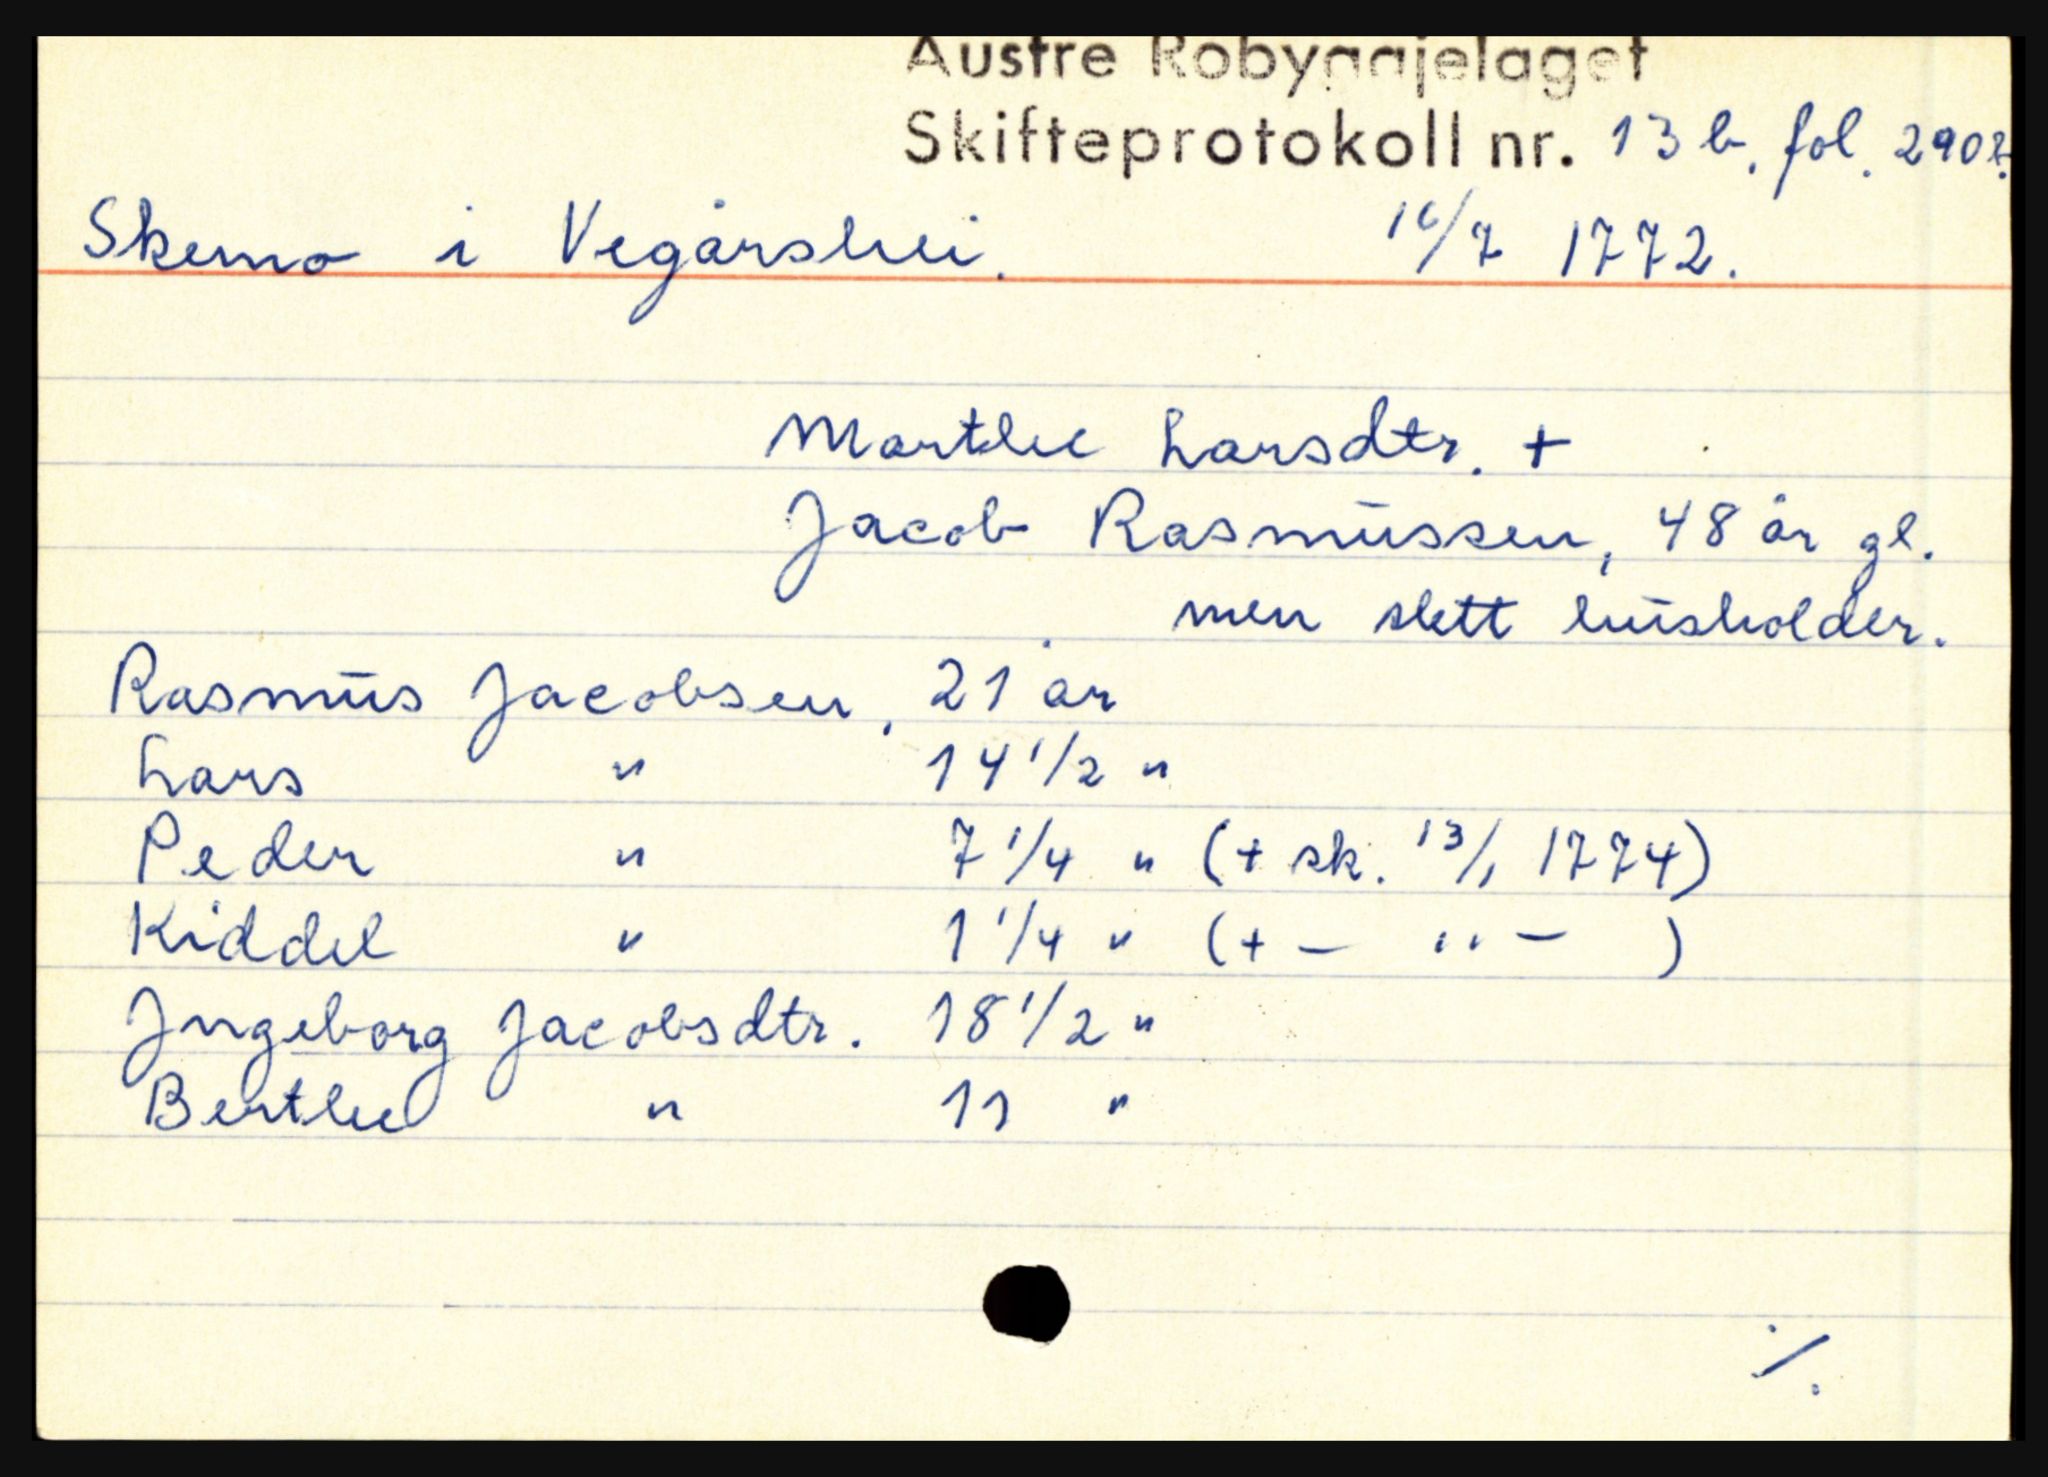 Austre Robyggjelaget
Skifteprotokoll nr. 13 b, fol. 290 b.
Skemo i Vegårshei. 16/7 1772.
Marthe Larsdtr. +
Jacob Rasmussen, 48 år gl.
men slett husholder.
Rasmus Jacobsen, 21 år
Lars " 14 1/2 "
Peder " 7 1/4 " (+ sk. 13/1 1774)
Kiddel " 1 1/4 " (+ — " — )
Ingeborg Jacobsdtr. 18 1/2 "
Berthe " 11 "
./.